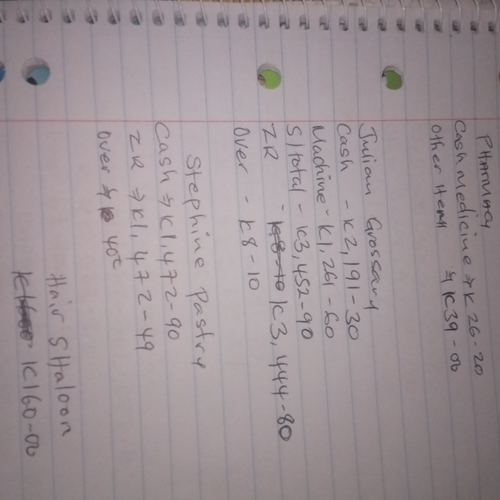 Pharmacy
Cash medicine → K 26-20
Other Item → K39-00
Julian Grossard
Cash - K2,191-30
Machine - K1,261-60
S/total - K3,452-90
ZR - K3,444-80
Over - K8-10
Stephine Pastry
Cash → K1,472-90
ZR → K1,472-49
Over → 40t
Hair SHaloon
K160-00